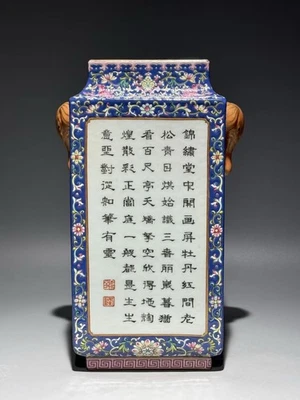 錦繡堂中開画屏牡丹紅間老
松青日烘始識三春麗歲暮猶
看百尺亭夭矯拏空欣得地絢
煌散彩正當庭一般都是生生
意對從知筆有靈